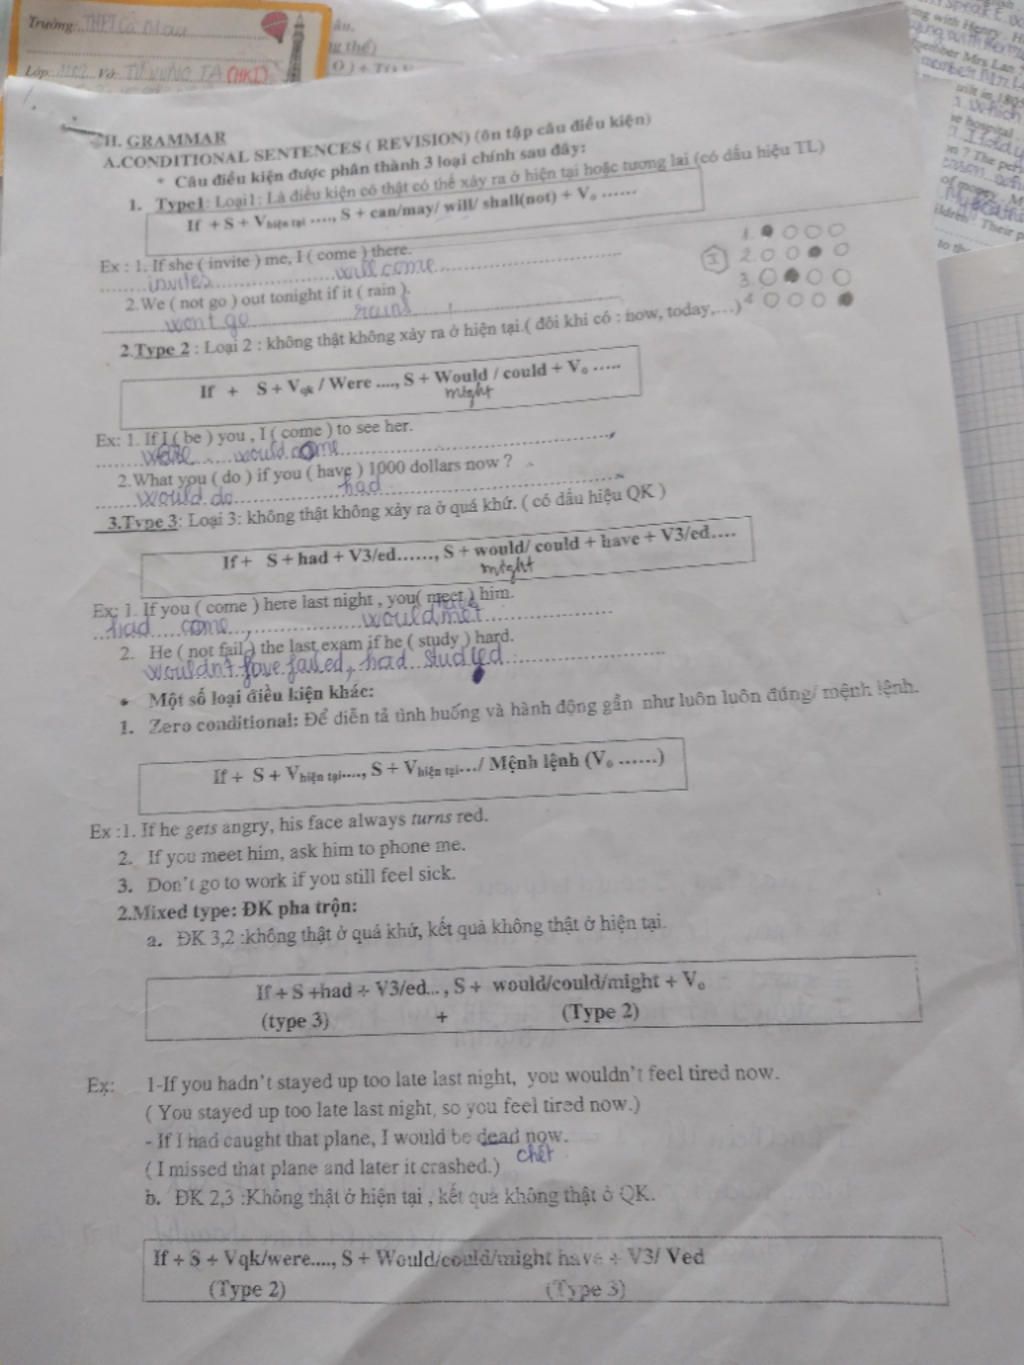 Trường: THPT Cà Mau
Lớp: Vở: TỪ VỰNG TA (HKI)
II. GRAMMAR
A.CONDITIONAL SENTENCES ( REVISION) (ôn tập câu điều kiện)
* Câu điều kiện được phân thành 3 loại chính sau đây:
1. Type1: Loại1: Là điều kiện có thật có thể xảy ra ở hiện tại hoặc tương lai (có dấu hiệu TL)
If + S + Vhiện tại ...., S + can/may/ will/ shall(not) + Vo ......
Ex : 1. If she ( invite ) me, I ( come ) there.
invites will come
2.We ( not go ) out tonight if it ( rain ).
won't go rains
1.
2.
3.
4
I
2.Type 2 : Loại 2 : không thật không xảy ra ở hiện tại.( đôi khi có : now, today,...)
If + S + Vqk / Were ...., S + Would / could + Vo .....
might
Ex: 1. If I ( be ) you , I ( come ) to see her.
were would come
2.What you ( do ) if you ( have ) 1000 dollars now ?
would do had
3.Type 3: Loại 3: không thật không xảy ra ở quá khứ. ( có dấu hiệu QK )
If + S + had + V3/ed......, S + would/ could + have + V3/ed....
might
Ex: 1. If you ( come ) here last night , you( meet ) him.
had come would have met
2. He ( not fail ) the last exam if he ( study ) hard.
wouldn't have failed, had studied
• Một số loại điều kiện khác:
1. Zero conditional: Để diễn tả tình huống và hành động gần như luôn luôn đúng/ mệnh lệnh.
If + S + Vhiện tại...., S + Vhiện tại.../ Mệnh lệnh (Vo ......)
Ex :1. If he gets angry, his face always turns red.
2. If you meet him, ask him to phone me.
3. Don't go to work if you still feel sick.
2.Mixed type: ĐK pha trộn:
a. ĐK 3,2 :không thật ở quá khứ, kết quả không thật ở hiện tại.
If + S +had + V3/ed... , S + would/could/might + Vo
(type 3) + (Type 2)
Ex: 1-If you hadn't stayed up too late last night, you wouldn't feel tired now.
( You stayed up too late last night, so you feel tired now.)
- If I had caught that plane, I would be dead now.
chết
( I missed that plane and later it crashed.)
b. ĐK 2,3 :Không thật ở hiện tại , kết quả không thật ở QK.
If + S + Vqk/were...., S + Would/could/might have + V3/ Ved
(Type 2) (Type 3)